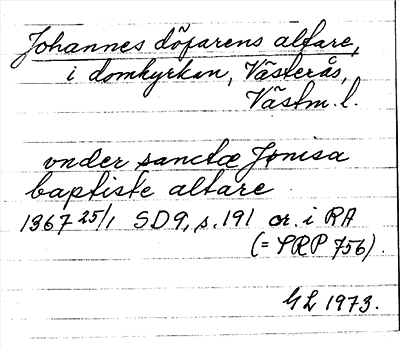 Johannes döparens altare,
i domkyrkan, Västerås,
Västm. l.
vnder sanctæ Jonisa
baptiste altare
1367 25/1 SD9, s. 191 or. i RA
(= SRP 756).
GL 1973.